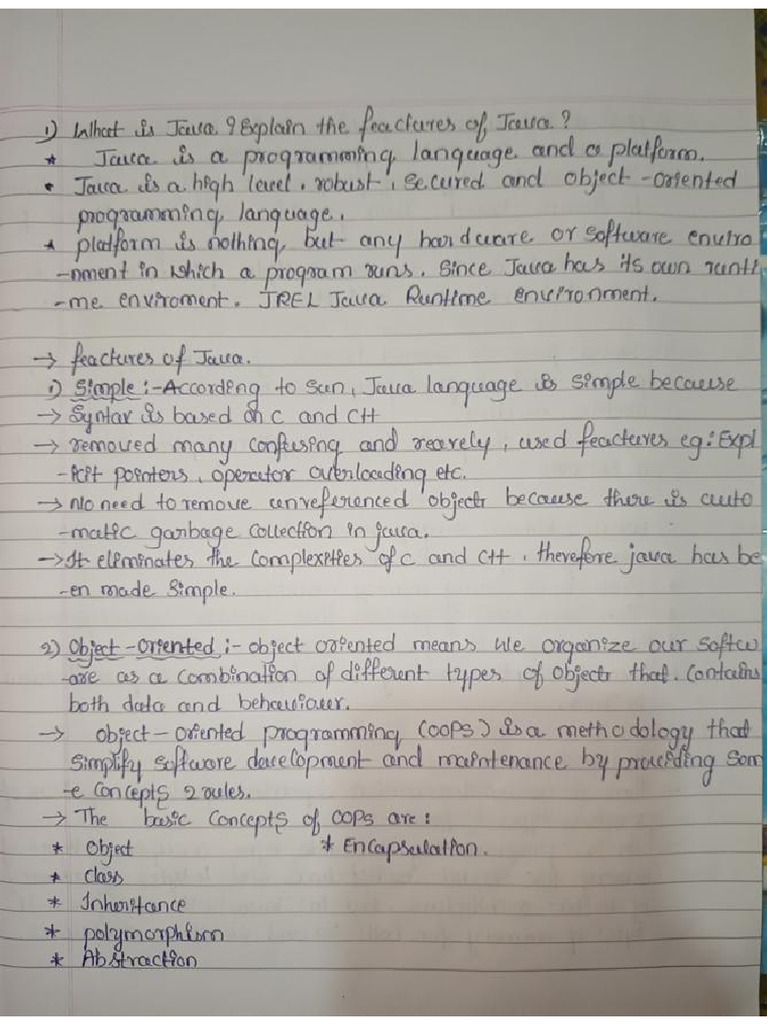 1) What is Java ? Explain the feactures of Java ?
* Java is a programming language and a platform.
• Java is a high level, robust, secured and object-oriented
programming language.
* platform is nothing but any hardware or software enviro
-nment in which a program runs. Since Java has its own runti
-me enviroment. JREL Java Runtime environment.
→ feactures of Java.
1) Simple :- According to Sun, Java language is simple because
→ Syntax is based on C and C++
→ removed many confusing and rearely, used feactures eg: Expl
-icit pointers, operator overloading etc.
→ No need to remove unreferenced objects because there is auto
-matic garbage collection in java.
→ It eliminates the complexities of c and C++. therefore java has be
-en made simple.
2) Object-Oriented :- object oriented means we organize our softw
-are as a combination of different types of objects that. Contains
both data and behaviour.
→ object-oriented programming (OOPS) is a methodology that
simplify software development and maintenance by providing som
-e concepts 2 rules.
→ The basic concepts of OOPs are :
* Object * Encapsulation.
* class
* Inheritance
* polymorphism
* Abstraction